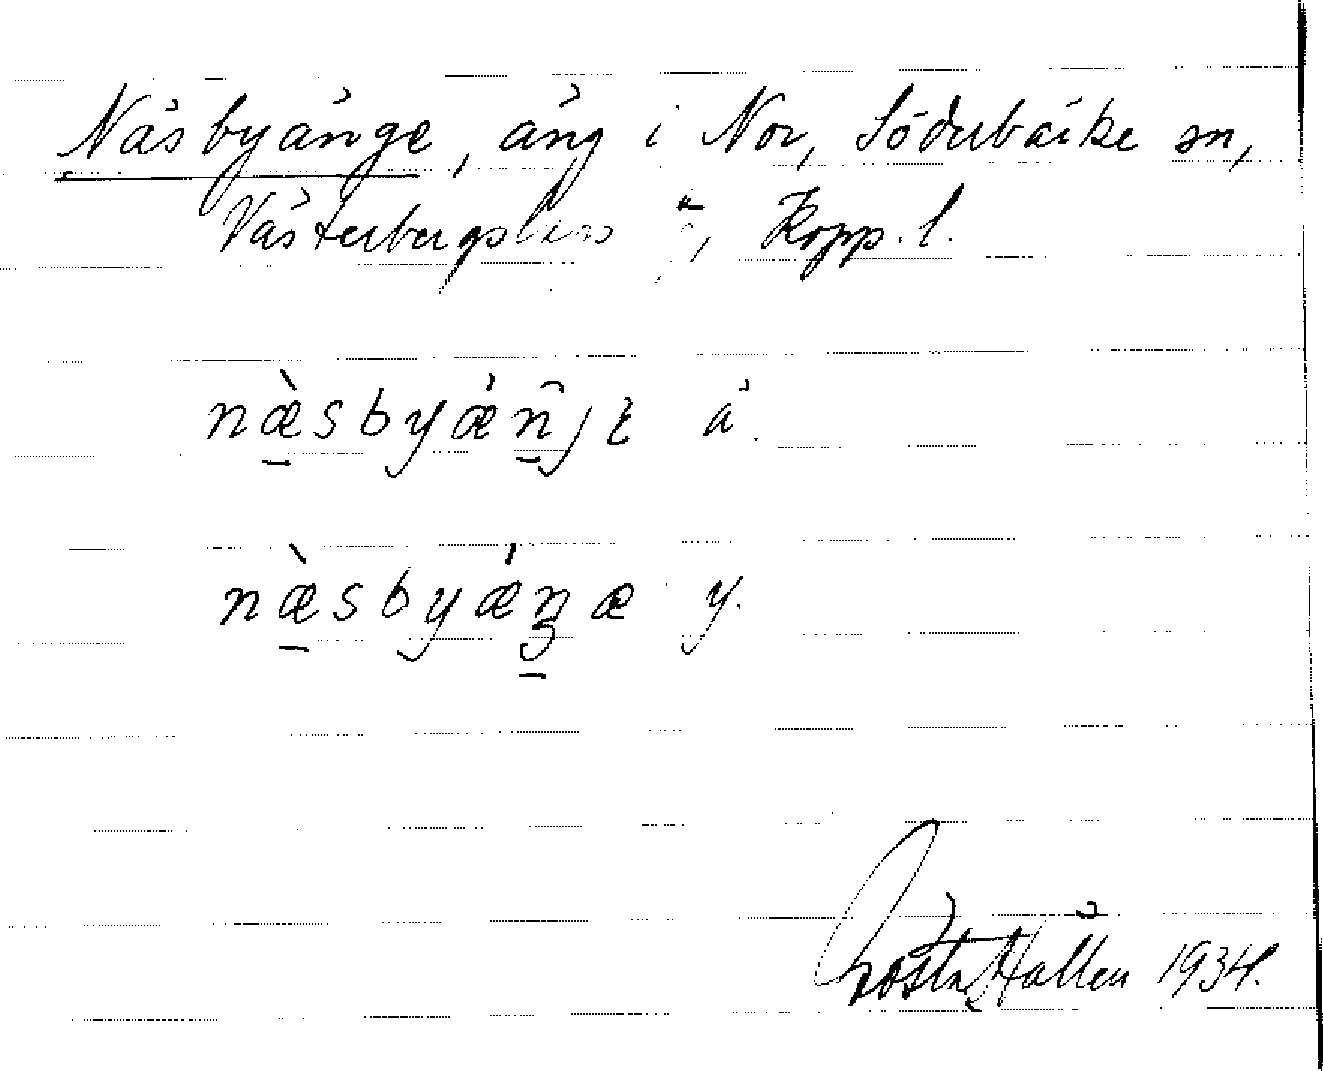 Näsbyänge, äng i Nor, Söderbärke sn,
Västerbergslags , Kopp. l.
næ̀sbyǽn̂jɛ ä.
næ̀sbyǽŋæ y.
Gösta Hallén 1934.